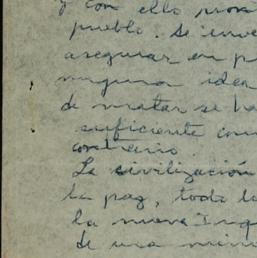 y con ello
pueblo. Se
asegurar en
ninguna idea
de matar se ha
suficiente
contrario.
La civilización
la paz, todo lo
la nueva
de una